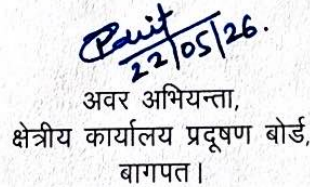 22/05/26.
अवर अभियन्ता,
क्षेत्रीय कार्यालय प्रदूषण बोर्ड,
बागपत।